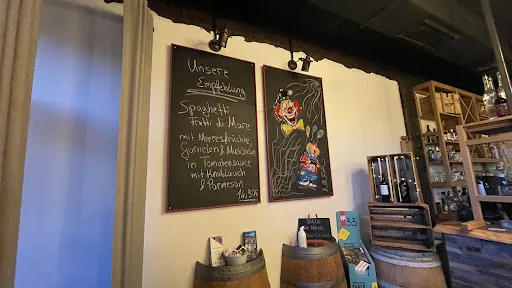 Unsere
Empfehlung
Spaghetti
Frutti di Mare
mit Meeresfrüchte,
Garnelen & Muscheln
in Tomatensauce
mit Knoblauch
& Parmesan
14,90€
Bitte
Hände
33